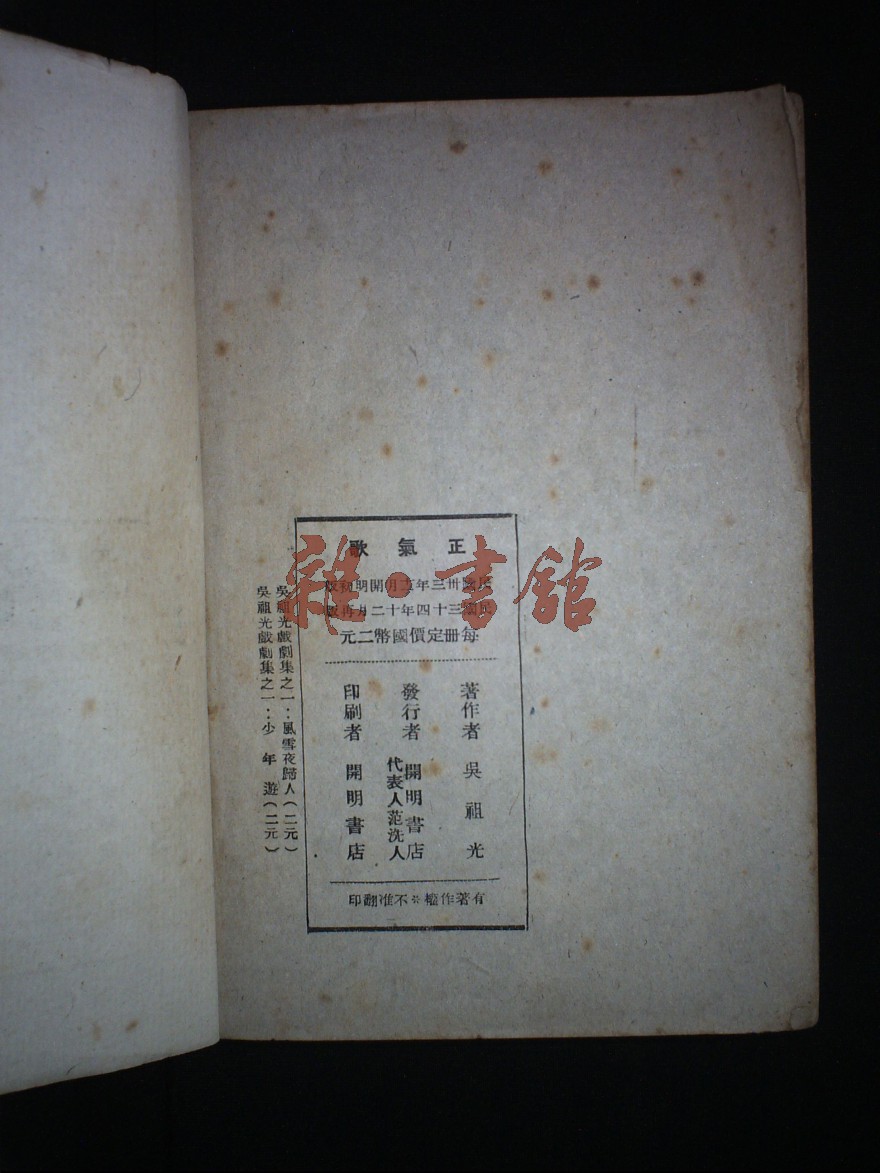 正氣歌
民國卅三年月開明初版
民國三十四年十二月再版
每册定價國幣二元
著作者 吳祖光
發行者 開明書店
代表人范洗人
印刷者 開明書店
有著作權※不准翻印
吳祖光戲劇集之一：風雪夜歸人（二元）
吳祖光戲劇集之一：少年遊（二元）
雜·書館